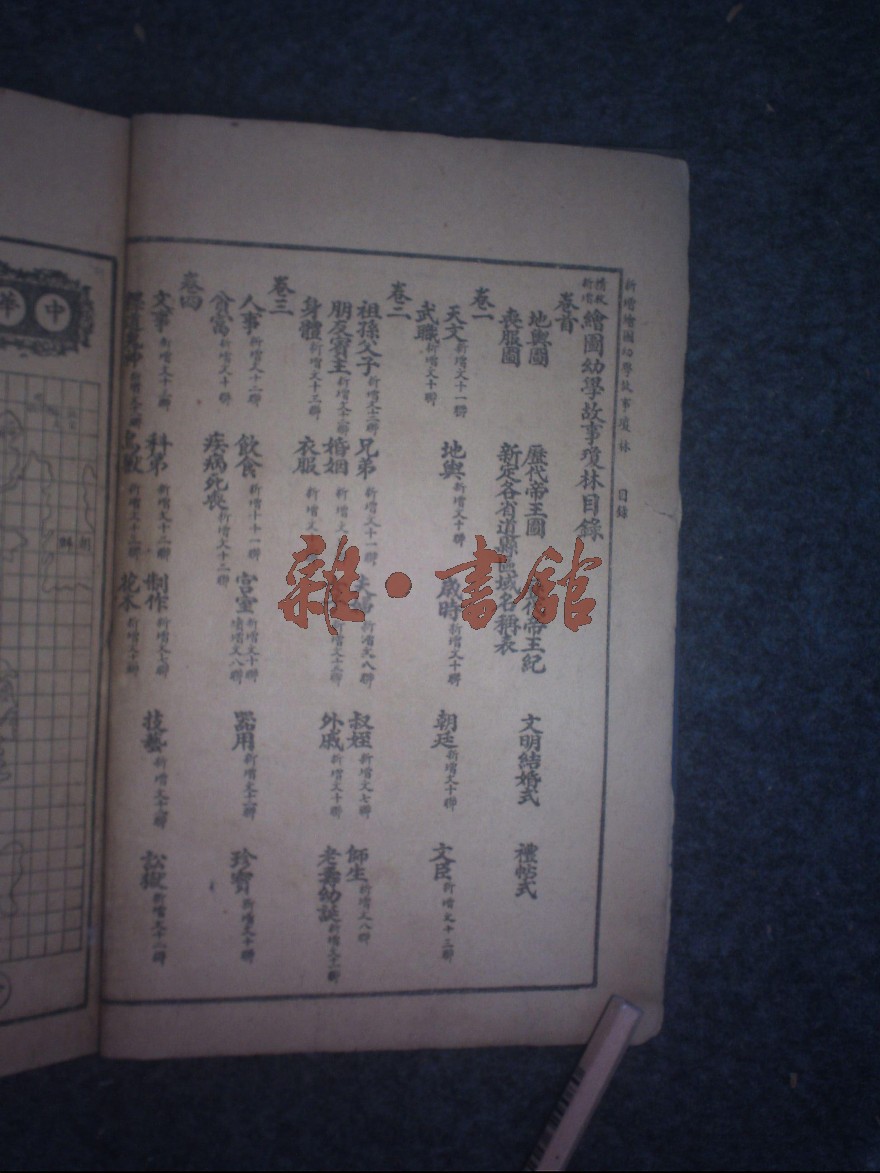 新增繪圖幼學故事瓊林 目錄
精校新增繪圖幼學故事瓊林目錄
卷首
地輿圖 歷代帝王圖 帝王紀 文明結婚式 禮帖式
喪服圖 新定各省道縣區域名稱表
卷一
天文 新增文十一聯 地輿 新增文十聯 歲時 新增文十聯 朝廷 新增文十聯 文臣 新增文十三聯
武職 新增文十聯
卷二
祖孫父子 新增文十二聯 兄弟 新增文十一聯 夫婦 新增文八聯 叔姪 新增文七聯 師生 新增文八聯
朋友賓主 新增文十二聯 婚姻 新增文 外戚 新增文十聯 老壽幼誕 新增文十二聯
身體 新增文十三聯 衣服 新增文
卷三
人事 新增文十二聯 飲食 新增十一聯 宮室 新增文十聯 續增文八聯 器用 新增文十二聯 珍寶 新增文十聯
貧富 新增文十聯 疾病死喪 新增文十三聯
卷四
文事 新增文十三聯 科第 新增文十二聯 制作 新增文十聯 技藝 新增文十二聯 訟獄 新增文十二聯
鳥獸 新增文十三聯 花木 新增文十聯
雜·書館
中華